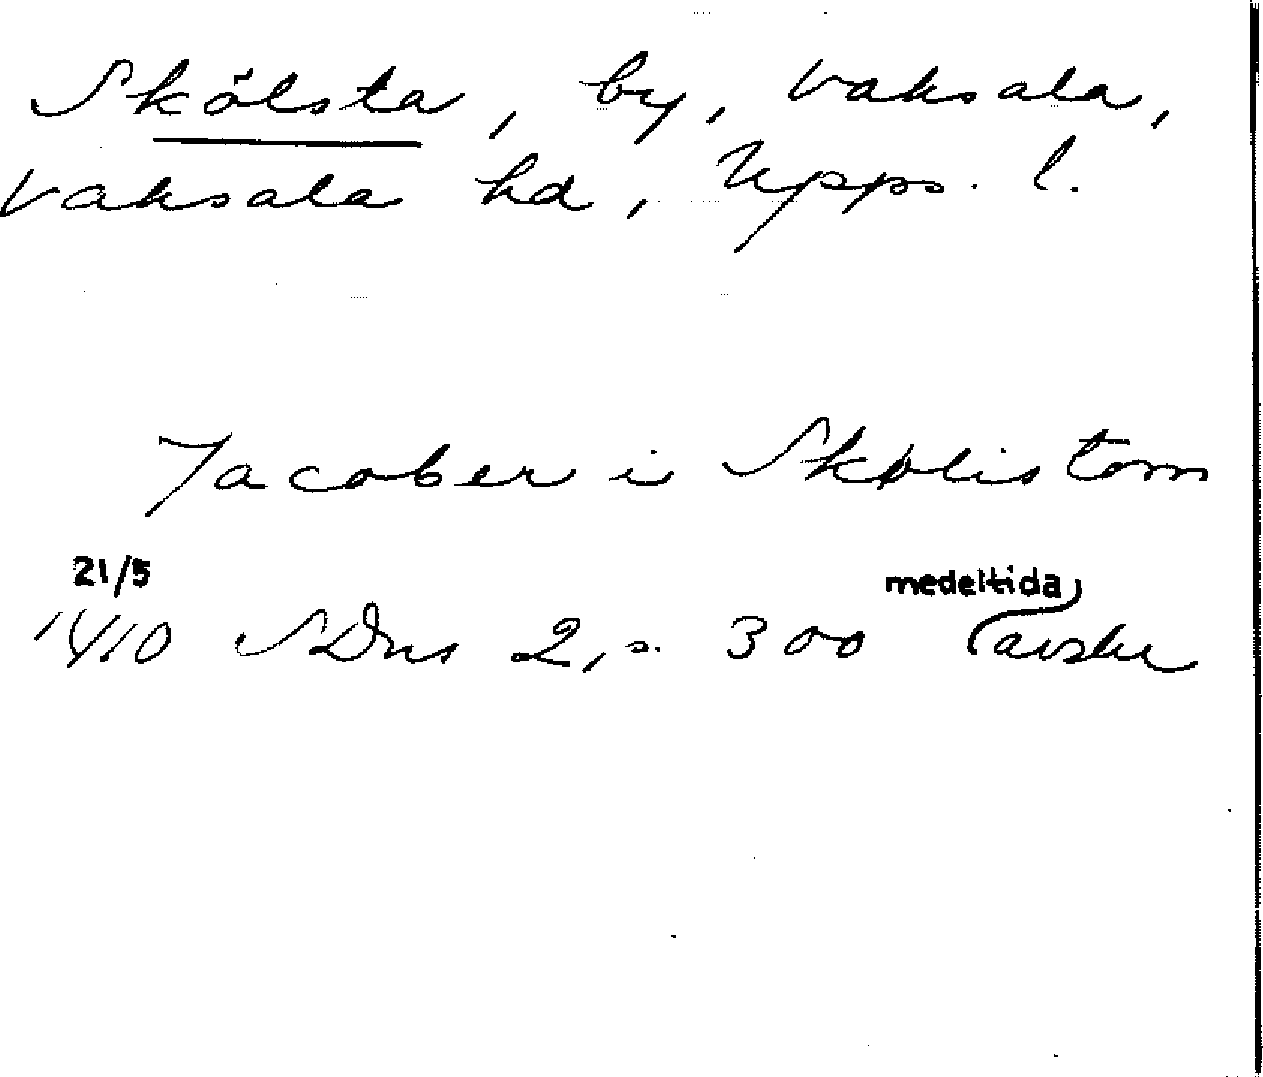 Skölsta, by, Vaksala,
Vaksala hd, Upps. l.
Jacober i Skølistom
21/5 medeltida
1410 SDns 2, s. 300 (avskr